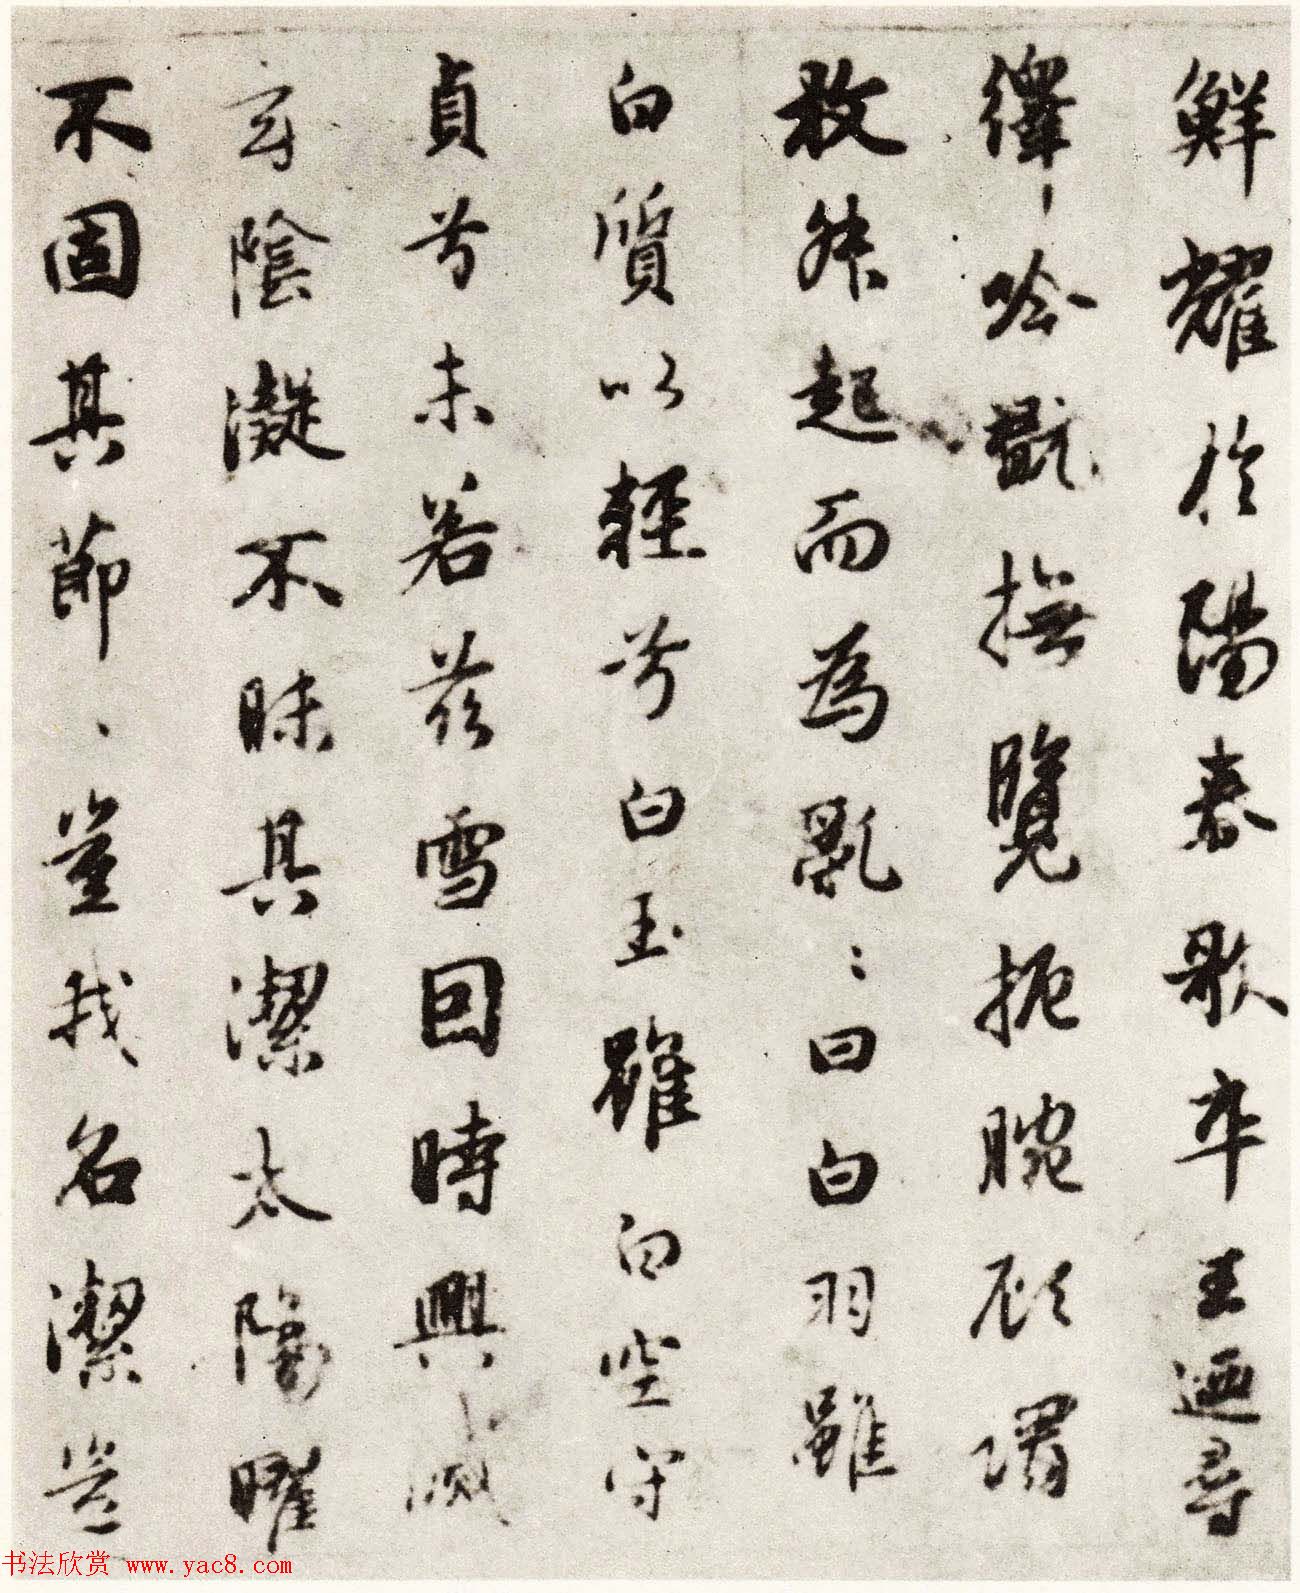 鮮耀於陽春歌卒王迺尋
繹、吟翫撫覽扼腕顧謂
枚叔起而為亂〻曰白羽雖
白質以輕兮白玉雖白空守
貞兮未若茲雪囙時興滅
玄陰凝不昧其潔太陽曜
不固其節、豈我名潔豈
书法欣赏 www.yac8.com